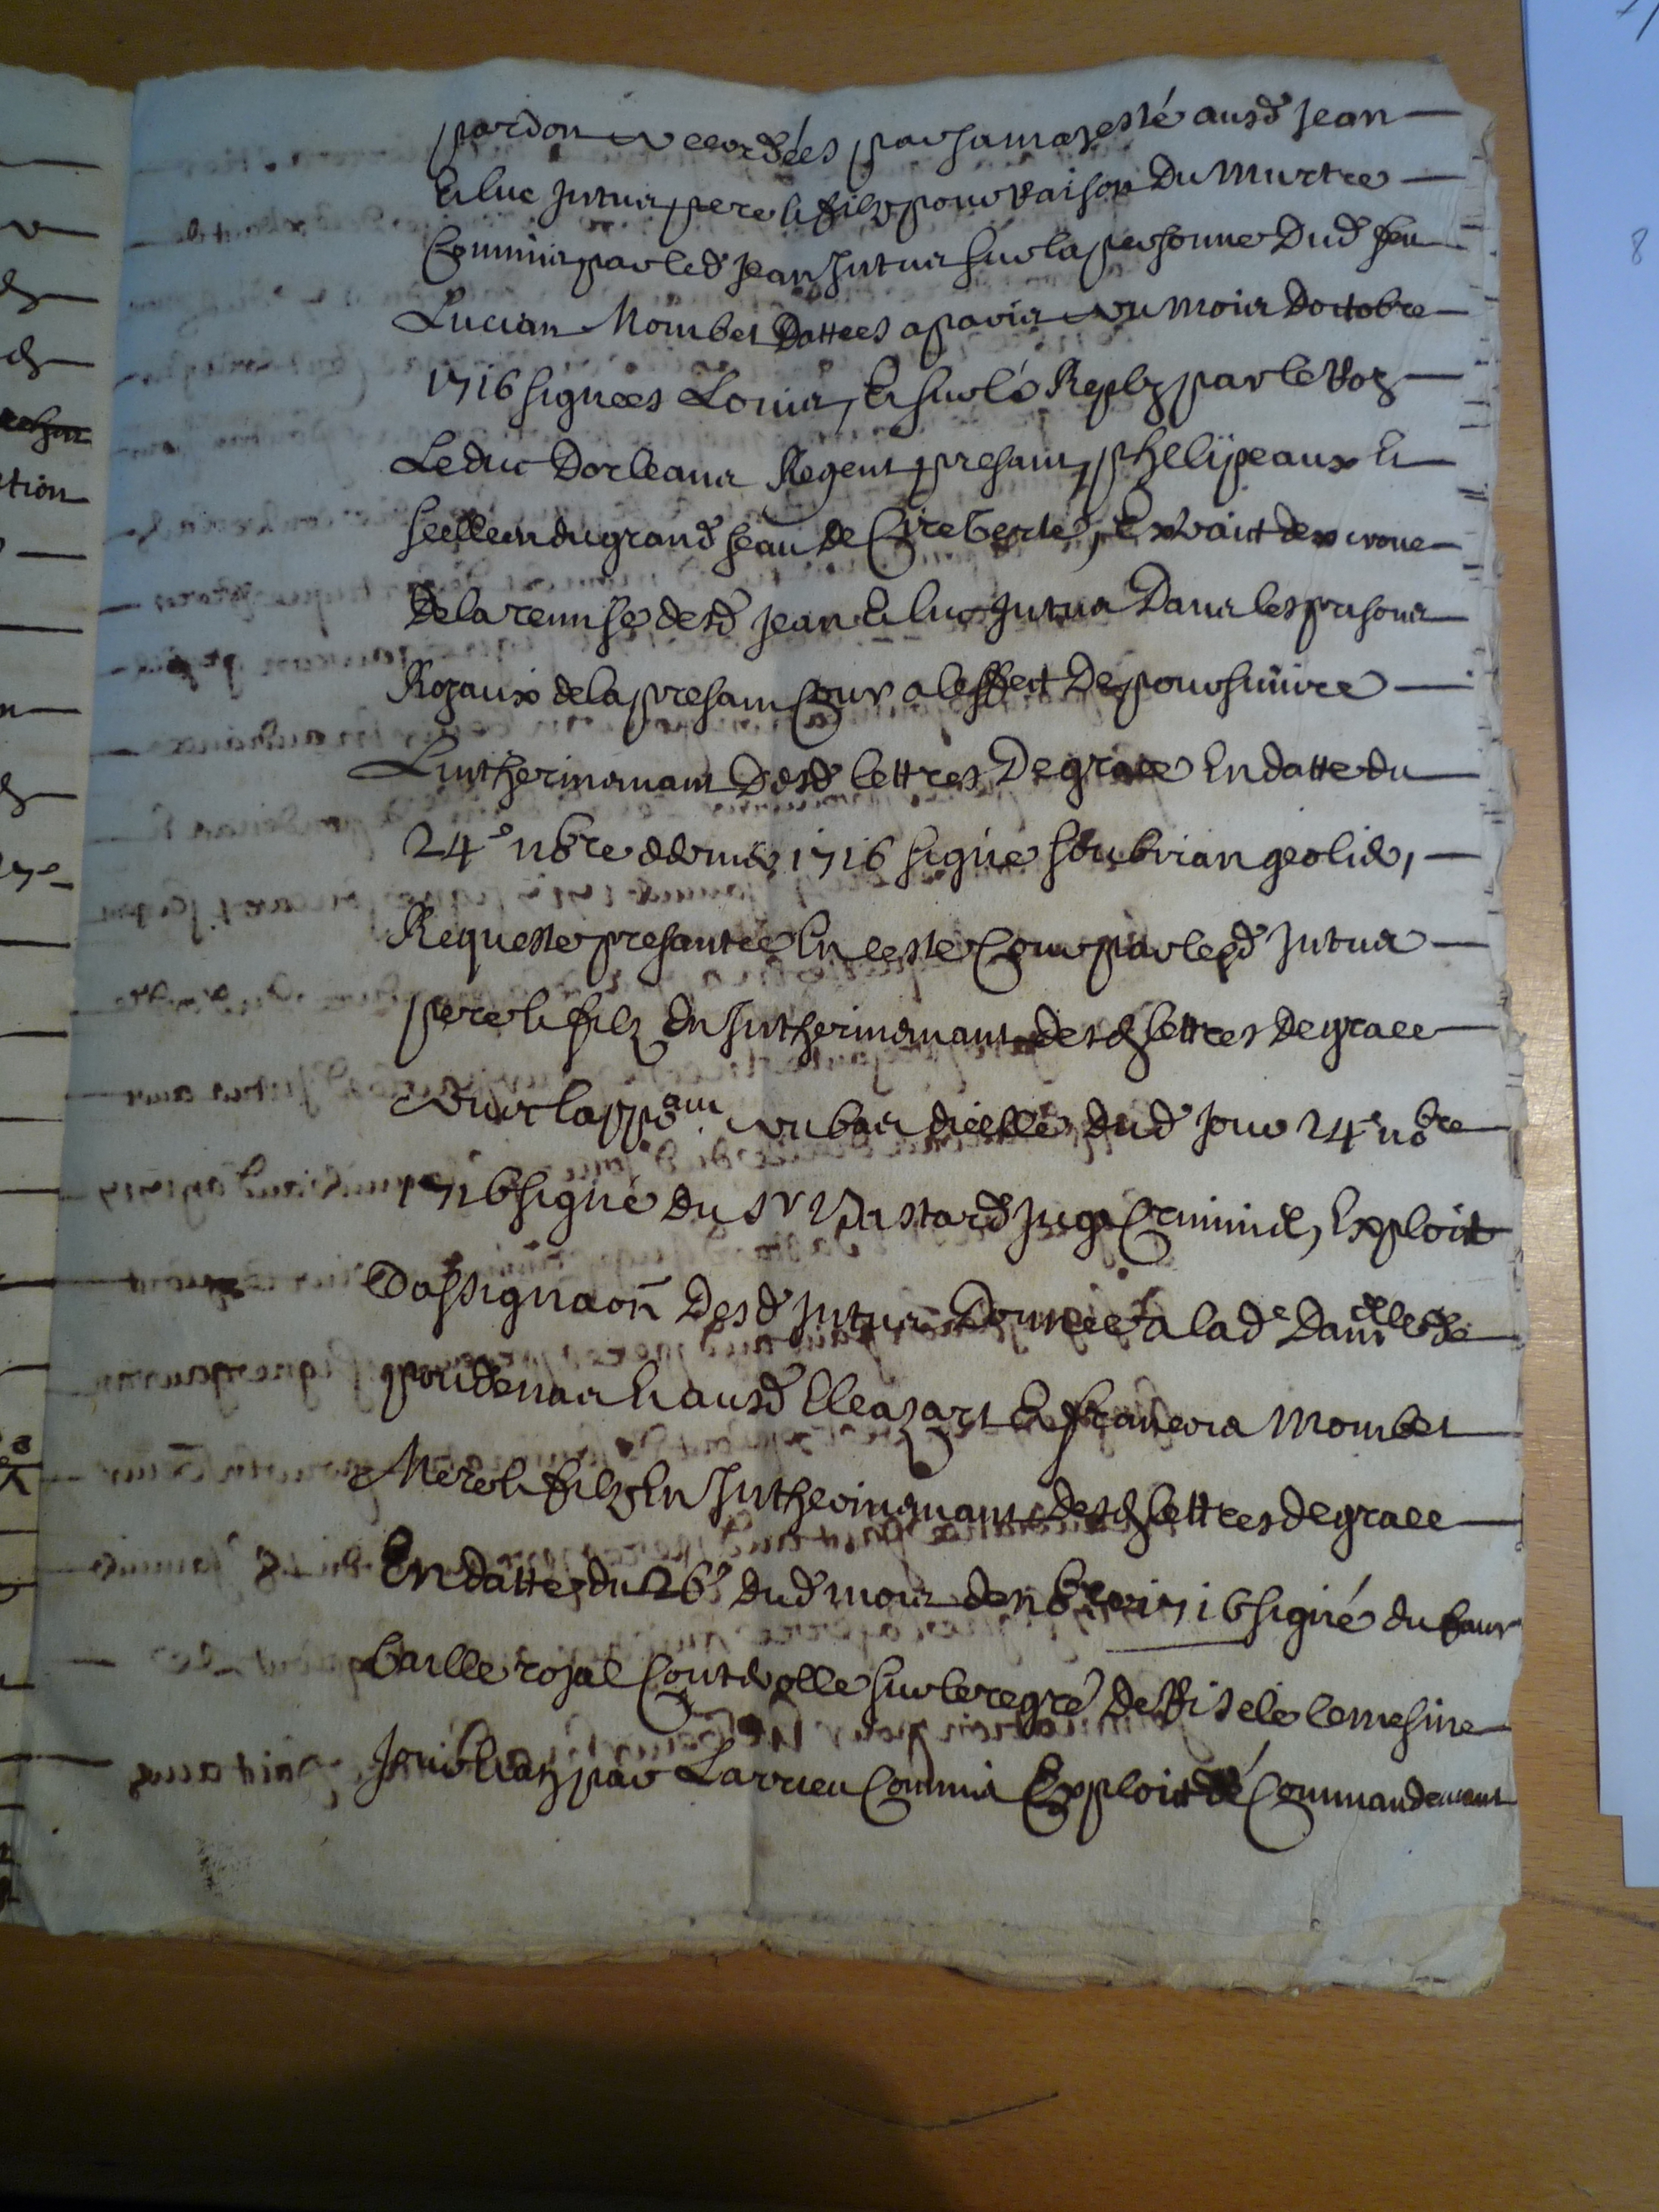 pardon accordées par sa majesté ausd Jean
Et luc Jntus pere et filz pour Raison Du Murtre
Commis par led Jean Jntus sur la personne Dud feu
Lucian Mombet Dattees a paris au mois Doctobre
1716 signees Louis, Et sur le Reply par le Roy
Le duc Dorleans Regent presant, phelipeaux Et
scellees du grand seau de Cire Verte, Extrait descroue
De la remise desd Jean Et luc Jntus Dans les prisons
Royaux de la presant Cour a leffect De poursuivre
Lintherinemant Desd lettres De grace En datte du
24e nbre dernier 1716 signé Soubrian geolier,
Requeste presantee En ceste Cour par lesd Jntus
pere et filz En Jntherinemant desd lettres De grace
avec lappoant au bas dicelle Dud Jour 24e nobre
1716 signé Du Sr Vastard Juge Criminel, Exploit
Dassignaon Desd Jntus Donnée a lade Damlle de
pridenas Et ausd Eleazart Et francois Mombet
Mere et filz En Jntherinemant desd lettres de grace
En datte du 26e dud mois de nbre 1716 signé du faur
baille royal Controlle sur le regre De le mesme
Jour par Larrieu Commis Exploit de Commandemant